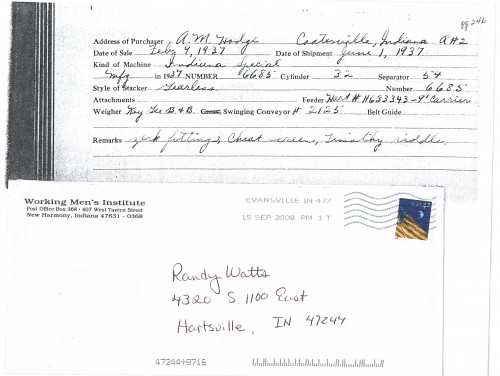 pg 246
Address of Purchaser A. M. Hodge Coatesville, Indiana R#2
Date of Sale Feby 9, 1937 Date of Shipment June 1, 1937
Kind of Machine Indiana Special
Mfg in 1937 NUMBER 6685 Cylinder 32 Separator 54
Style of Stacker Gearless Number 6685
Attachments Feeder Hart # H633343-9' Carrier
Weigher Kay Tee B & B. Swinging Conveyor # 2125 Belt Guide
Remarks zerk fittings, Cheat screen, Timothy riddle.
Working Men's Institute
Post Office Box 368 • 407 West Tavern Street
New Harmony, Indiana 47631 - 0368
EVANSVILLE IN 477
15 SEP 2008 PM 1 T
Randy Watts
4320 S. 1100 East
Hartsville, IN 47244
47244+9715